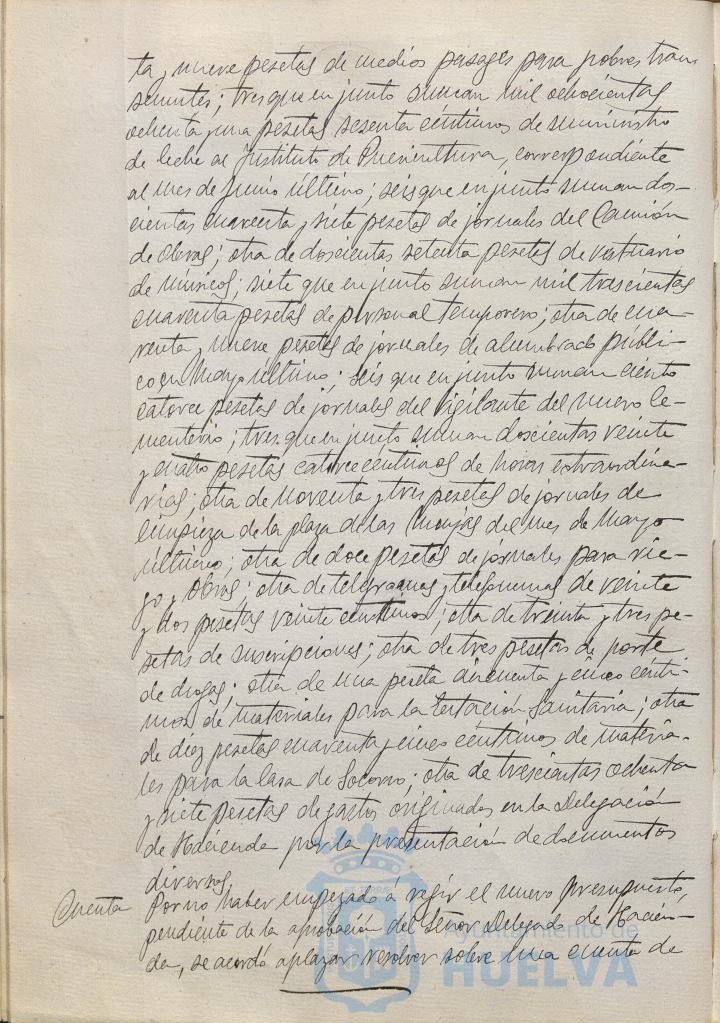 ta y nueve pesetas de medios pasages para pobres tran-
seuntes; tres que en junto suman mil ochocientas
ochenta y una pesetas sesenta céntimos de suministro
de leche al Instituto de Puericultura, correspondiente
al mes de Junio último; seis que en junto suman dos-
cientas cuarenta y siete pesetas de jornales del Camión
de Obras; otra de doscientas setenta pesetas de vestuario
de músicos; siete que en junto suman mil trescientas
cuarenta pesetas de personal temporero; otra de cua-
renta y nueve pesetas de jornales de alumbrado públi-
co en Mayo último; seis que en junto suman ciento
catorce pesetas de jornales del vigilante del nuevo Ce-
menterio; tres que en junto suman doscientas veinte
y cuatro pesetas catorce céntimos de horas extraordina-
rias; otra de noventa y tres pesetas de jornales de
limpieza de la plaza de las Monjas del mes de Mayo
último; otra de doce pesetas de jornales para rie-
go y obras; otra de telegramas y telefonemas de veinte
y dos pesetas veinte céntimos; otra de treinta y tres pe-
setas de suscripciones; otra de tres pesetas de porte
de drogas; otra de una peseta cincuenta y cinco cénti-
mos de materiales para la Estación Sanitaria; otra
de diez pesetas cuarenta y cinco céntimos de materia-
les para la Casa de Socorro; otra de trescientas ochenta
y siete pesetas de gastos originados en la Delegación
de Hacienda por la presentación de documentos
diversos.
Cuenta Por no haber empezado á regir el nuevo presupuesto,
pendiente de la aprobación del Señor Delegado de Hacien-
da, se acordó aplazar resolver sobre una cuenta de
Ayuntamiento de
HUELVA